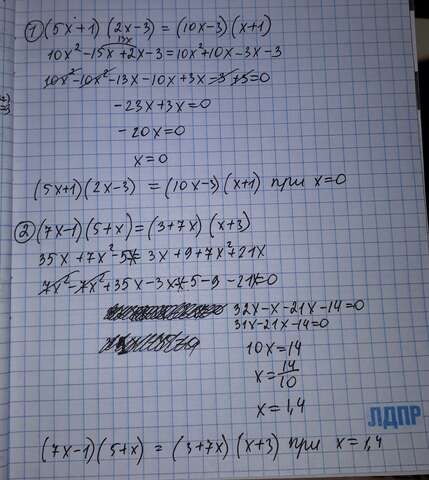 ① (5x+1)(2x-3) = (10x-3)(x+1)
13x
10x²-15x+2x-3=10x²+10x-3x-3
10x²-10x²-13x-10x+3x-3+3=0
-23x+3x=0
-20x=0
x=0
(5x+1)(2x-3) = (10x-3)(x+1) при x=0
② (7x-1)(5+x)=(3+7x)(x+3)
35x+7x²-5-x= 3x+9+7x²+21x
7x²-7x²+35x-3x-x-5-9-21x=0
32x-x-21x-14=0
31x-21x-14=0
10x=14
x=14/10
x=1,4
ЛДПР
(7x-1)(5+x) = (3+7x)(x+3) при x=1,4